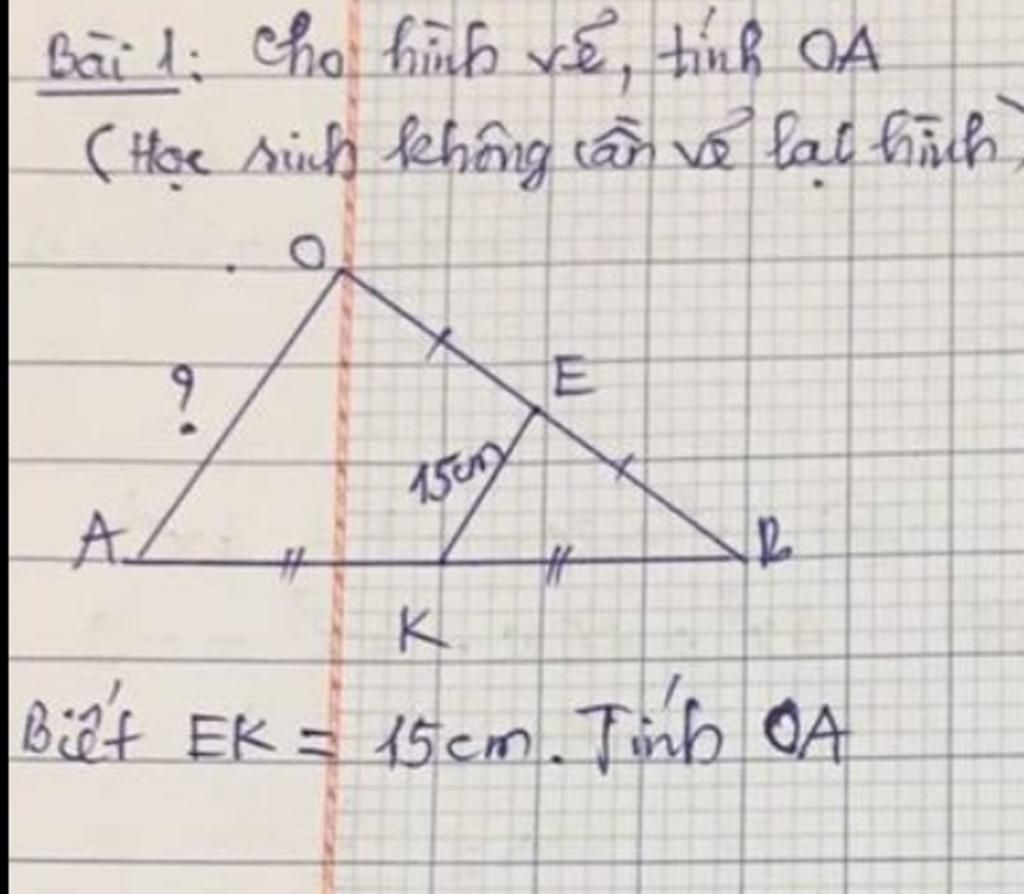 Bài 1: Cho hình vẽ, tính OA
(Học sinh không cần vẽ lại hình)
O
?
E
15cm
A
B
K
Biết EK = 15cm. Tính OA